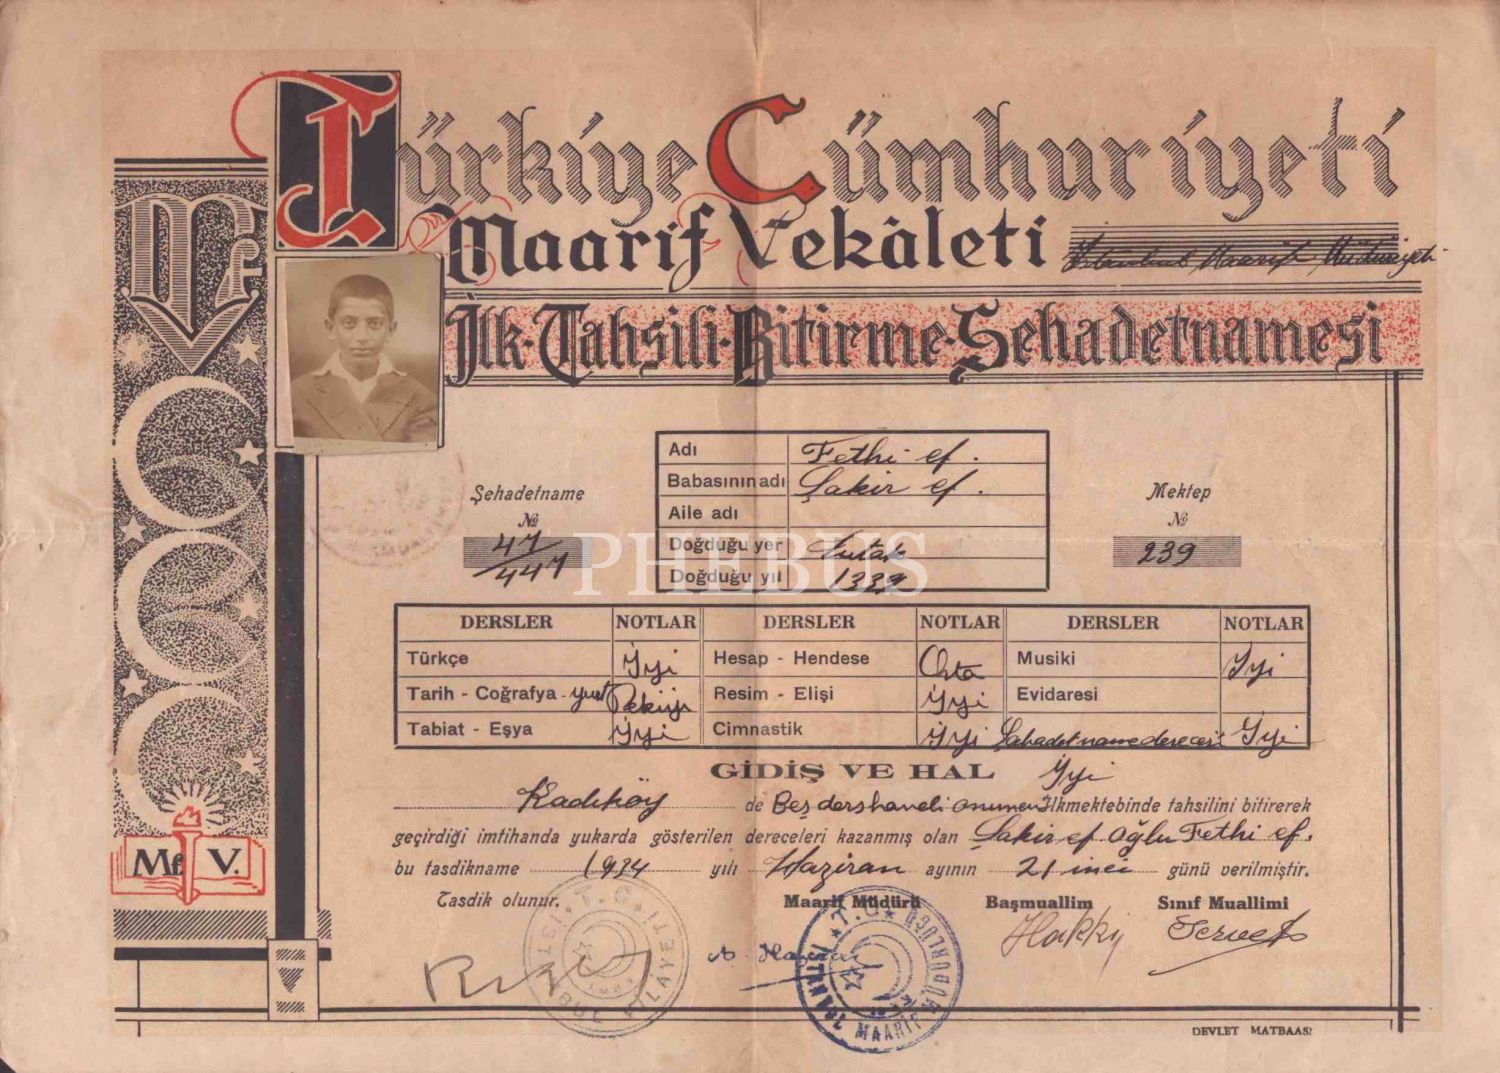 Türkiye Cümhuriyeti
Maarif Vekâleti
İstanbul Maarif Müdüriyeti
İlk-Tahsili-Bitirme-Şehadetnamesi
Mf V
Adı Fethi ef.
Babasının adı Şakir ef.
Aile adı
Doğduğu yer
Doğduğu yıl 1339
Şehadetname
№
47/447
Mektep
№
239
PHEBUS
DERSLER NOTLAR DERSLER NOTLAR DERSLER NOTLAR
Türkçe İyi Hesap - Hendese Orta Musiki İyi
Tarih - Coğrafya - yurt Pekiyi Resim - Elişi İyi Evidaresi
Tabiat - Eşya İyi Cimnastik İyi Şahadetname derecesi İyi
GİDİŞ VE HAL İyi
Kadıköy de Beş dershaneli onuncu İlkmektebinde tahsilini bitirerek
geçirdiği imtihanda yukarda gösterilen dereceleri kazanmış olan Şakir ef. Oğlu Fethi ef.
bu tasdikname 1934 yılı Haziran ayının 21 inci günü verilmiştir.
Tasdik olunur. Maarif Müdürü Başmuallim Sınıf Muallimi
Hakkı Servet
T.C. İSTANBUL VİLAYETİ
T.C. İSTANBUL MAARİF MÜDÜRLÜĞÜ
Mf. V.
DEVLET MATBAASI